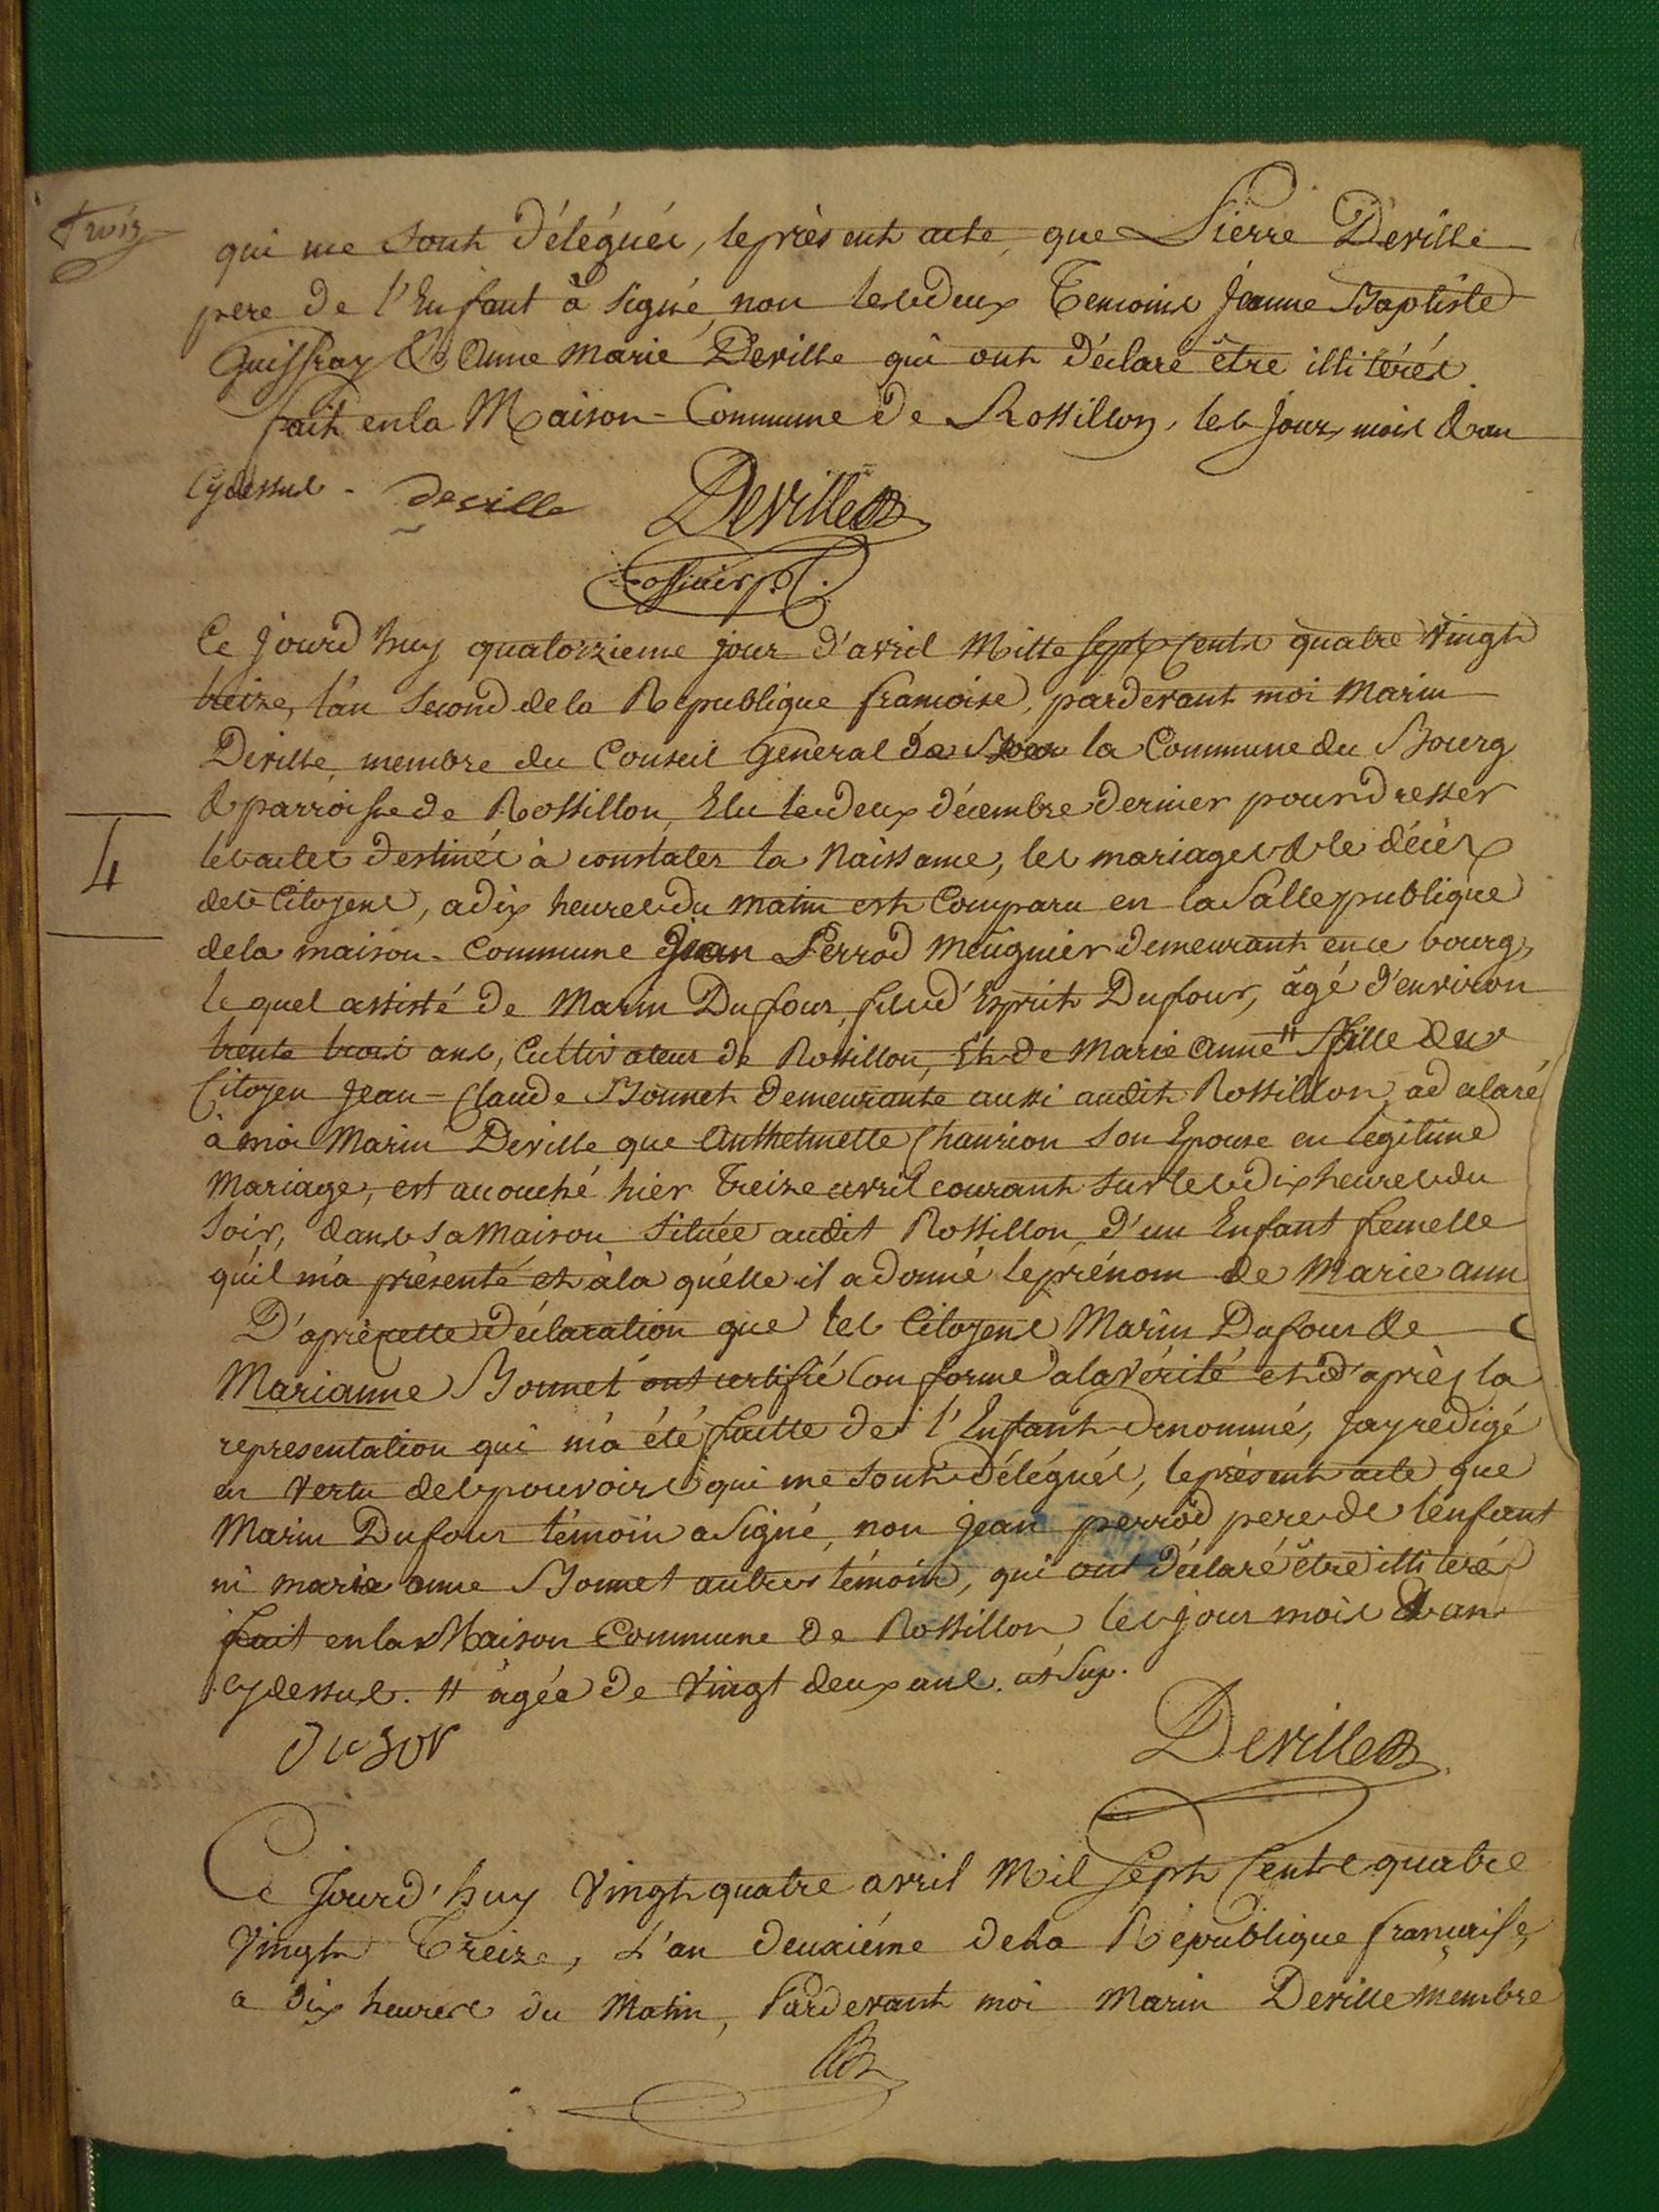 Troiz
qui me sont délégués, le présent acte, que Pierre Deville
pere de l'Enfant à signé, non les deux Temoins Jeanne Baptiste
Guiffray & Anne Marie Deville qui ont déclaré être illitérés.
fait en la Maison-Commune de Rossillon, les Jour, mois & an
cydessus - deville Deville
officier p.
Ce jourd'huy quatorzieme jour d'avril Mille sept cents quatre vingt
treize, l'an second de la Republique françoise, pardevant moi Marin
Deville, membre du Conseil General de la Commune du Bourg
& parroisse de Rossillon, Elu le deux décembre dernier pour dresser
4
les actes destinés à constater la Naissance, les mariages & le décès
des Citoyens, a dix heures du matin est Comparu en la Salle publique
de la maison-Commune Jean Perrod Meugnier demeurant en ce bourg,
lequel assisté de Marin Dufour, fils d'Esprit Dufour, âgé d'environ
trente trois ans, Cultivateur de Rossillon, Et de Marie Anne # fille du
Citoyen Jean-Claude Bonnet demeurante aussi audit Rossillon, a déclaré
à moi Marin Deville que Anthelmette Chaurion son Epouse en legitime
Mariage, est accouché hier Treize avril courant sur les dix heures du
soir, dans sa Maison située audit Rossillon, d'un Enfant femelle
qu'il m'a présenté et à la quélle il a donné le prénom de Marie ann
D'après cette déclaration que les Citoyens Marin Dufour & e
Marianne Bonnet ont certifié conforme a la vérité et d'après la
representation qui m'a été faitte de l'Enfant denommé, J'ay redigé
en vertu des pouvoirs qui me sont délégués, le présent acte que
Marin Dufour témoin a signé, non jean perrod pere de l'enfant
ni marie anne Bonnet autres témoins, qui ont déclaré être illiterés
fait en la Maison Commune de Rossillon, les jour mois & an
cydessus. # âgée de vingt deux ans. ut Sup.
Dufor Deville
Ce Jourd'huy Vingt quatre avril Mil Sept Cents quatre
Vingt Treize, L'an deuxiéme de la République françaisse,
a dix heures du Matin, Pardevant moi Marin Deville membre